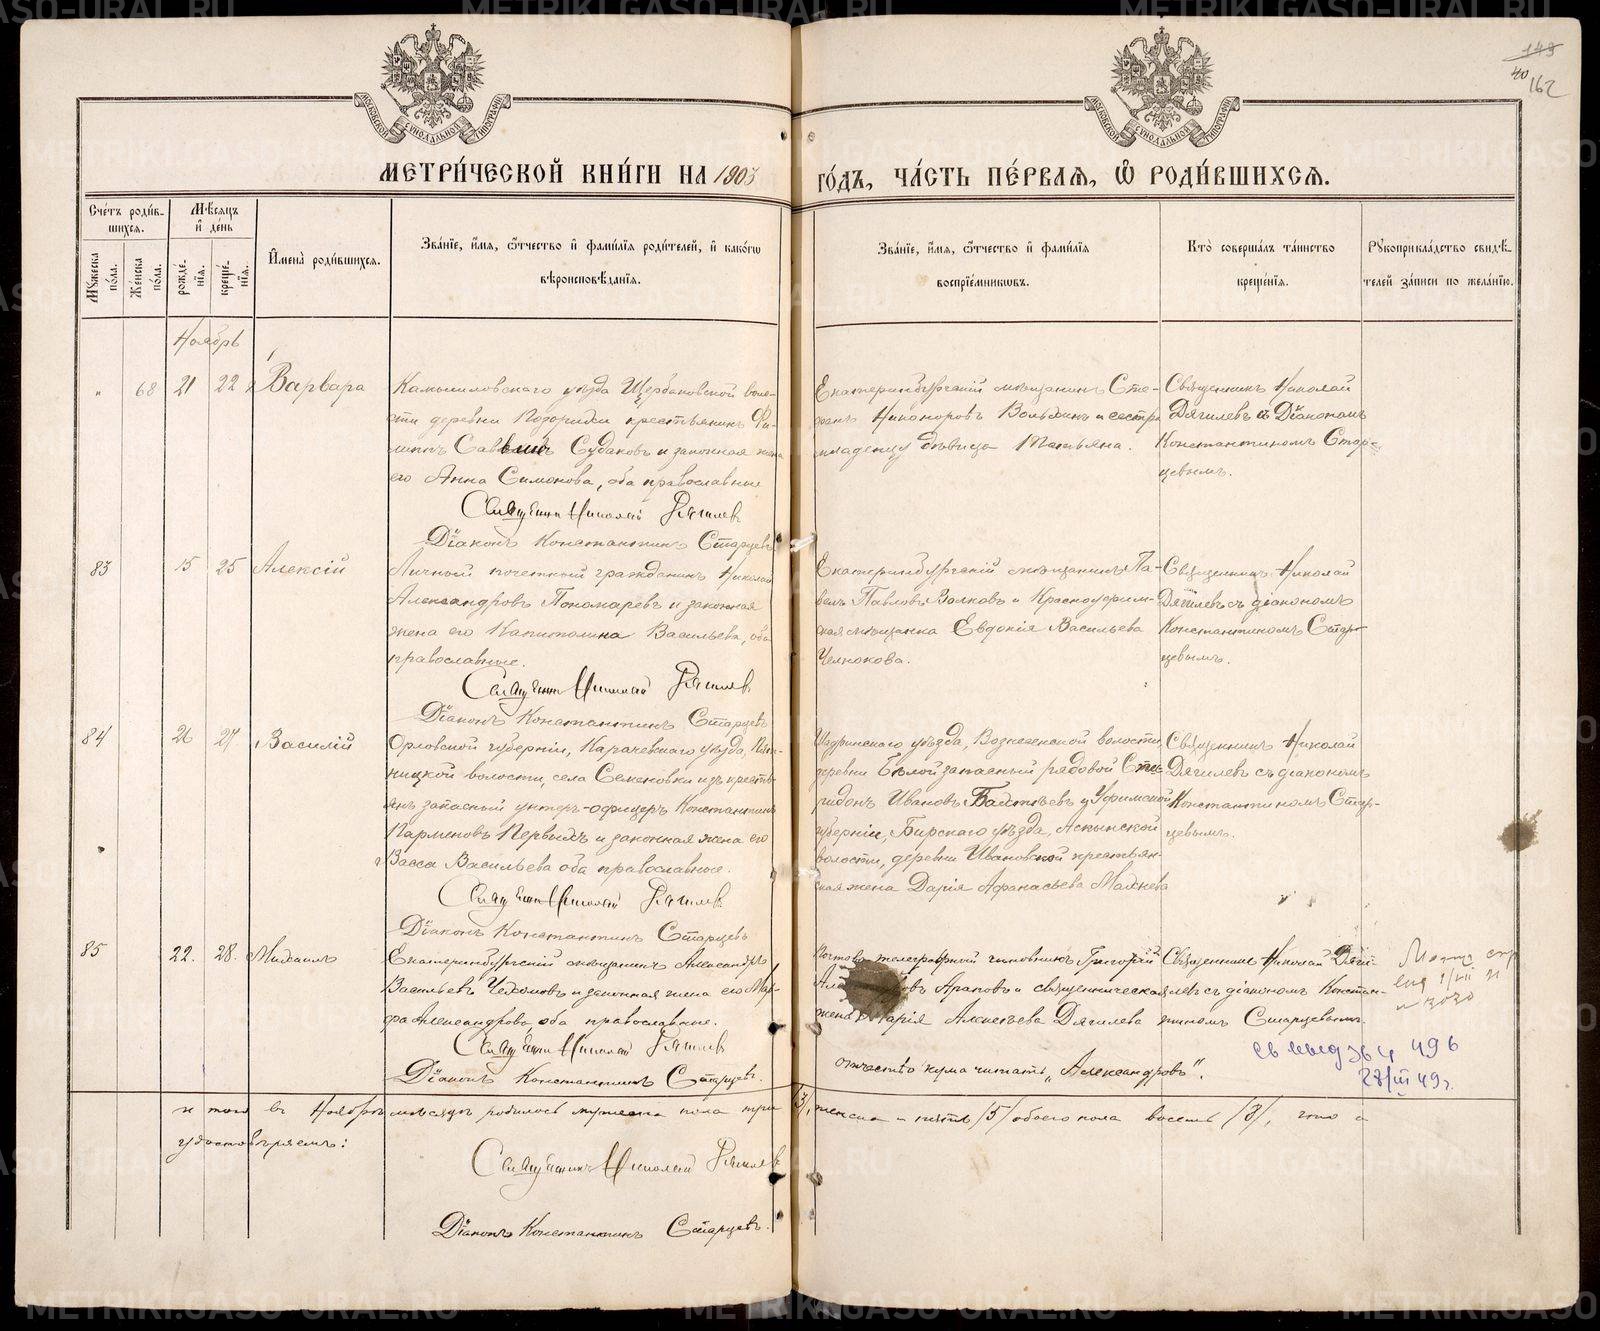 149
40
162
МОСКОВСКОЙ СѴНОДАЛЬНОЙ ТИПОГРАФІИ
МОСКОВСКОЙ СѴНОДАЛЬНОЙ ТИПОГРАФІИ
МЕТРИ́ЧЕСКОЙ КНИ́ГИ НА 1903 ГО́ДЪ, ЧА́СТЬ ПЕ́РВАЯ, Ѽ РОДИ́ВШИХСЯ.
Сче́тъ роди́в-
шихся.
Мѣсяцъ
и҆ де́нь
Мꙋ́жеска по́ла.
Же́нска по́ла.
рожде́-
нїя.
креще́-
нїя.
И҆мена̀ роди́вшихся.
Зва́нїе, и҆́мя, ѻ҆́тчество и҆ фами́лїя роди́телей, и҆ како́гѡ
вѣроисповѣ́данїя.
Зва́нїе, и҆́мя, ѻ҆́тчество и҆ фами́лїя
воспрїе́мникѡвъ.
Кто̀ соверша́лъ та́инство
креще́нїя.
Рꙋкоприкла́дство свидѣ́-
телей за́писи по жела́нїю.
Ноябрь
" 68 21 22 Варвара
Камышловскаго уѣзда Щербаковской воло-
сти деревни крестьянинъ Фи-
липпъ Саввинъ Судаковъ и законная жена
его Анна Симонова, оба православные
Священникъ Николай Дягилевъ
Діаконъ Константинъ Старцевъ
Екатеринбургскій мѣщанинъ Сте-
панъ Никаноровъ и сестра
младенцу дѣвица Татьяна.
Священникъ Николай
Дягилевъ съ Діакономъ
Константиномъ Стар-
цевымъ.
83 15 25 Алексій
Личный почетный гражданинъ Николай
Александровъ Пономаревъ и законная
жена его Капитолина Васильева, оба
православные.
Священникъ Николай Дягилевъ
Діаконъ Константинъ Старцевъ
Екатеринбургскій мѣщанинъ Па-
велъ Павловъ Волковъ и Красноуфим-
ская мѣщанка Евдокія Васильева
Челнокова.
Священникъ Николай
Дягилевъ съ діакономъ
Константиномъ Стар-
цевымъ.
84 26 27 Василій
Орловской губерніи, Карачевскаго уѣзда, Пят-
ницкой волости, села Семеновки изъ кресть-
янъ запасный унтеръ-офицеръ Константинъ
Парменовъ Первыхъ и законная жена его
Васса Васильева оба православные.
Священникъ Николай Дягилевъ
Діаконъ Константинъ Старцевъ
Шадринскаго уѣзда, Вознесенской волости,
деревни Бѣлой запасный рядовой Спи-
ридонъ Ивановъ и Уфимской
губерніи, Бирскаго уѣзда, Аскынской
волости, деревни Ивановской крестьян-
ская жена Дарія Афанасьева
Священникъ Николай
Дягилевъ съ діакономъ
Константиномъ Стар-
цевымъ.
85 22. 28. Михаилъ
Екатеринбургскій мѣщанинъ Александръ
Васильевъ и законная жена его Мар-
фа Александрова, оба православные.
Священникъ Николай Дягилевъ
Діаконъ Константинъ Старцевъ.
Почтово-телеграфный чиновникъ Григорій
Араповъ и священническая
жена Марія Алексѣева Дягилева
отчество кума читать „Александровъ".
Священникъ Николай Дяги-
левъ съ діакономъ Констан-
тиномъ Старцевымъ
496
28/III 49 г.
Итого въ Ноябрѣ мѣсяцѣ родилось мужеска пола три /3/, женска – пять /5/ обоего пола восемь /8/, что и
удостовѣряемъ:
Священникъ Николай Дягилевъ
Діаконъ Константинъ Старцевъ.
METRIKI.GASO-URAL.RU